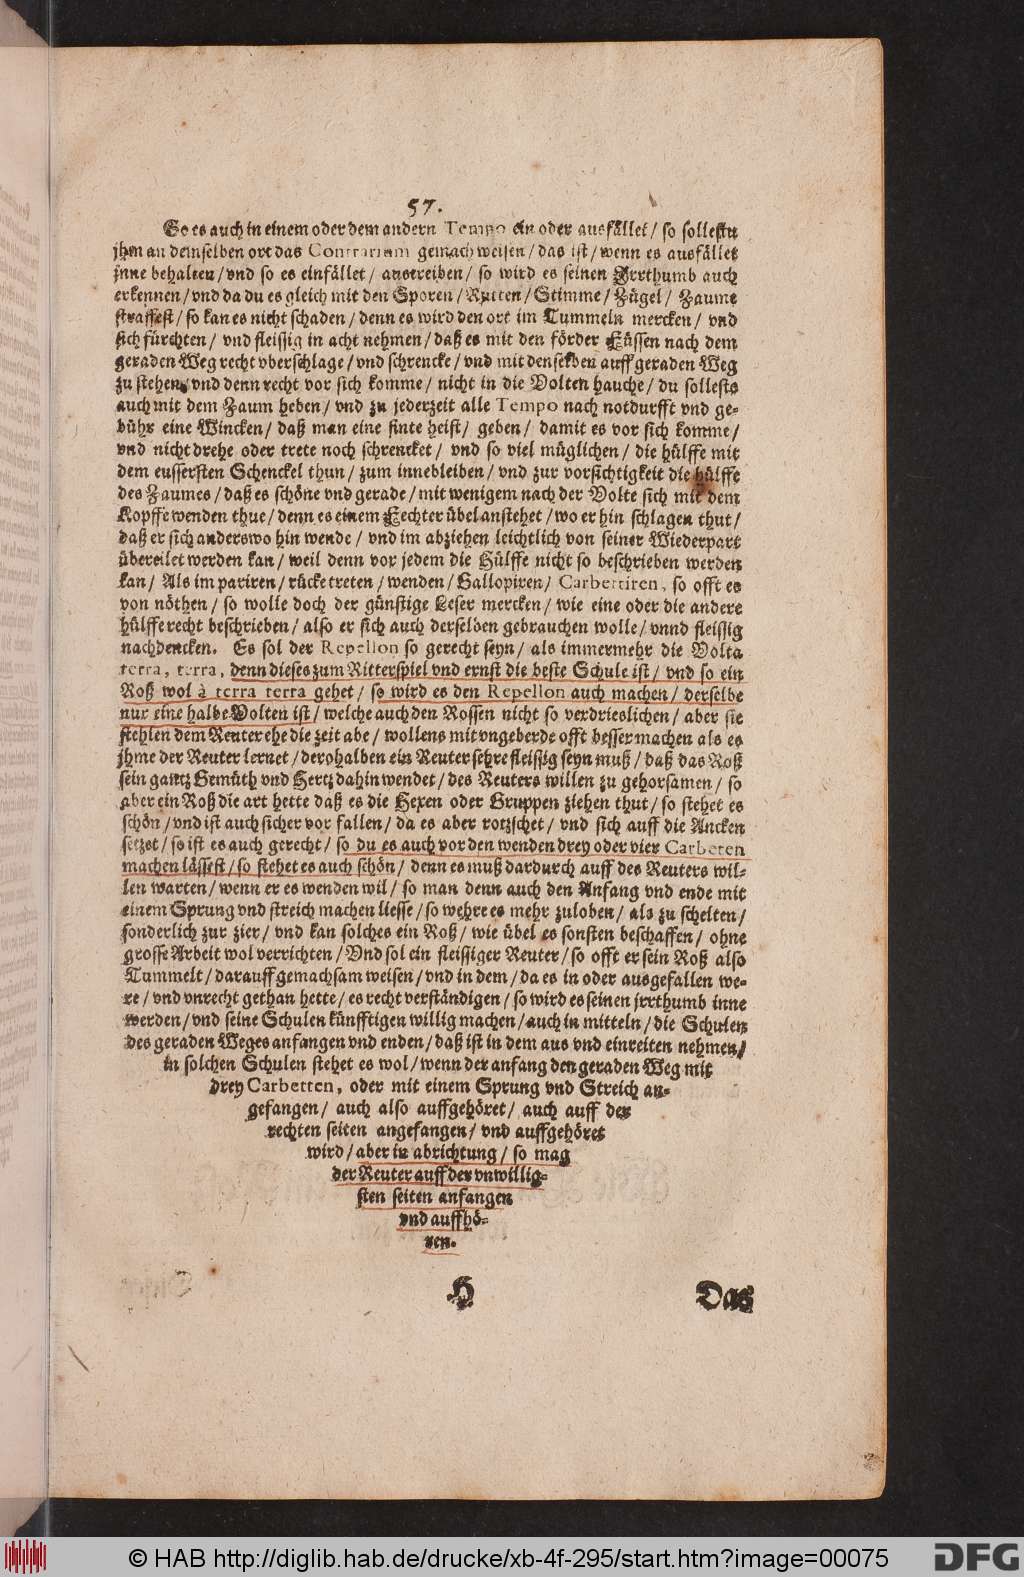 57.
So es auch in einem oder dem andern Tempo ein oder ausfället / so sollestu
jhm an demselben ort das Contrarium gemach weisen / das ist / wenn es ausfället
inne behalten / vnd so es einfället / austreiben / so wird es seinen Irrthumb auch
erkennen / vnd da du es gleich mit den Sporen / Rutten / Stimme / Zügel / Zaume
straffest / so kan es nicht schaden / denn es wird den ort im Tummeln mercken / vnd
sich fürchten / vnd fleissig in acht nehmen / daß es mit den förder Füssen nach dem
geraden Weg recht vberschlage / vnd schrencke / vnd mit denselben auff geraden Weg
zu stehen / vnd denn recht vor sich komme / nicht in die Volten hauche / du sollests
auch mit dem Zaum heben / vnd zu jederzeit alle Tempo nach notdurfft vnd ge-
bühr eine Wincken / daß man eine finte heist / geben / damit es vor sich komme /
vnd nicht drehe oder trete noch schrencket / vnd so viel müglichen / die hülffe mit
dem eussersten Schenckel thun / zum innebleiben / vnd zur vorsichtigkeit die hülffe
des Zaumes / daß es schöne vnd gerade / mit wenigem nach der Volte sich mit dem
Kopffe wenden thue / denn es einem Fechter übel anstehet / wo er hin schlagen thut /
daß er sich anderswo hin wende / vnd im abziehen leichtlich von seiner Wiederpart
übereilet werden kan / weil denn vor jedem die Hülffe nicht so beschrieben werden
kan / Als im pariren / rücke treten / wenden / Gallopiren / Carbettiren, so offt es
von nöthen / so wolle doch der günstige Leser mercken / wie eine oder die andere
hülffe recht beschrieben / also er sich auch derselben gebrauchen wolle / vnnd fleissig
nachdencken. Es sol der Repellon so gerecht seyn / als immermehr die Volta
terra, terra, denn dieses zum Ritterspiel vnd ernst die beste Schule ist / vnd so ein
Roß wol à terra terra gehet / so wird es den Repellon auch machen / derselbe
nur eine halbe Volten ist / welche auch den Rossen nicht so verdrieslichen / aber sie
stehlen dem Reuter ehe die zeit abe / wollens mit vngeberde offt besser machen als es
jhme der Reuter lernet / derohalben ein Reuter sehre fleissig seyn muß / daß das Roß
sein gantz Gemüth vnd Hertz dahin wendet / des Reuters willen zu gehorsamen / so
aber ein Roß die art hette daß es die Hexen oder Gruppen ziehen thut / so stehet es
schön / vnd ist auch sicher vor fallen / da es aber rotzschet / vnd sich auff die Ancken
setzst / so ist es auch gerecht / so du es auch vor den wenden drey oder vier Carbeten
machen lässest / so stehet es auch schön / denn es muß dardurch auff des Reuters wil-
len warten / wenn er es wenden wil / so man denn auch den Anfang vnd ende mit
einem Sprung vnd streich machen liesse / so wehre es mehr zuloben / als zu schelten /
sonderlich zur zier / vnd kan solches ein Roß / wie übel es sonsten beschaffen / ohne
grosse Arbeit wol verrichten / Vnd sol ein fleissiger Reuter / so offt er sein Roß also
Tummelt / darauff gemachsam weisen / vnd in dem / da es in oder ausgefallen we-
re / vnd vnrecht gethan hette / es recht verständigen / so wird es seinen jrrthumb inne
werden / vnd seine Schulen künfftigen willig machen / auch in mitteln / die Schulen
des geraden Weges anfangen vnd enden / daß ist in dem aus vnd einreiten nehmen /
in solchen Schulen stehet es wol / wenn der anfang den geraden Weg mit
drey Carbetten, oder mit einem Sprung vnd Streich an-
gefangen / auch also auffgehöret / auch auff der
rechten seiten angefangen / vnd auffgehöret
wird / aber in abrichtung / so mag
der Reuter auff der vnwillig-
sten seiten anfangen
vnd auffhö-
ren.
H
Das
© HAB http://diglib.hab.de/drucke/xb-4f-295/start.htm?image=00075
DFG